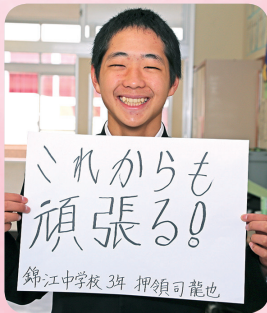 これからも
頑張る!
錦江中学校 3年 押領司 龍也